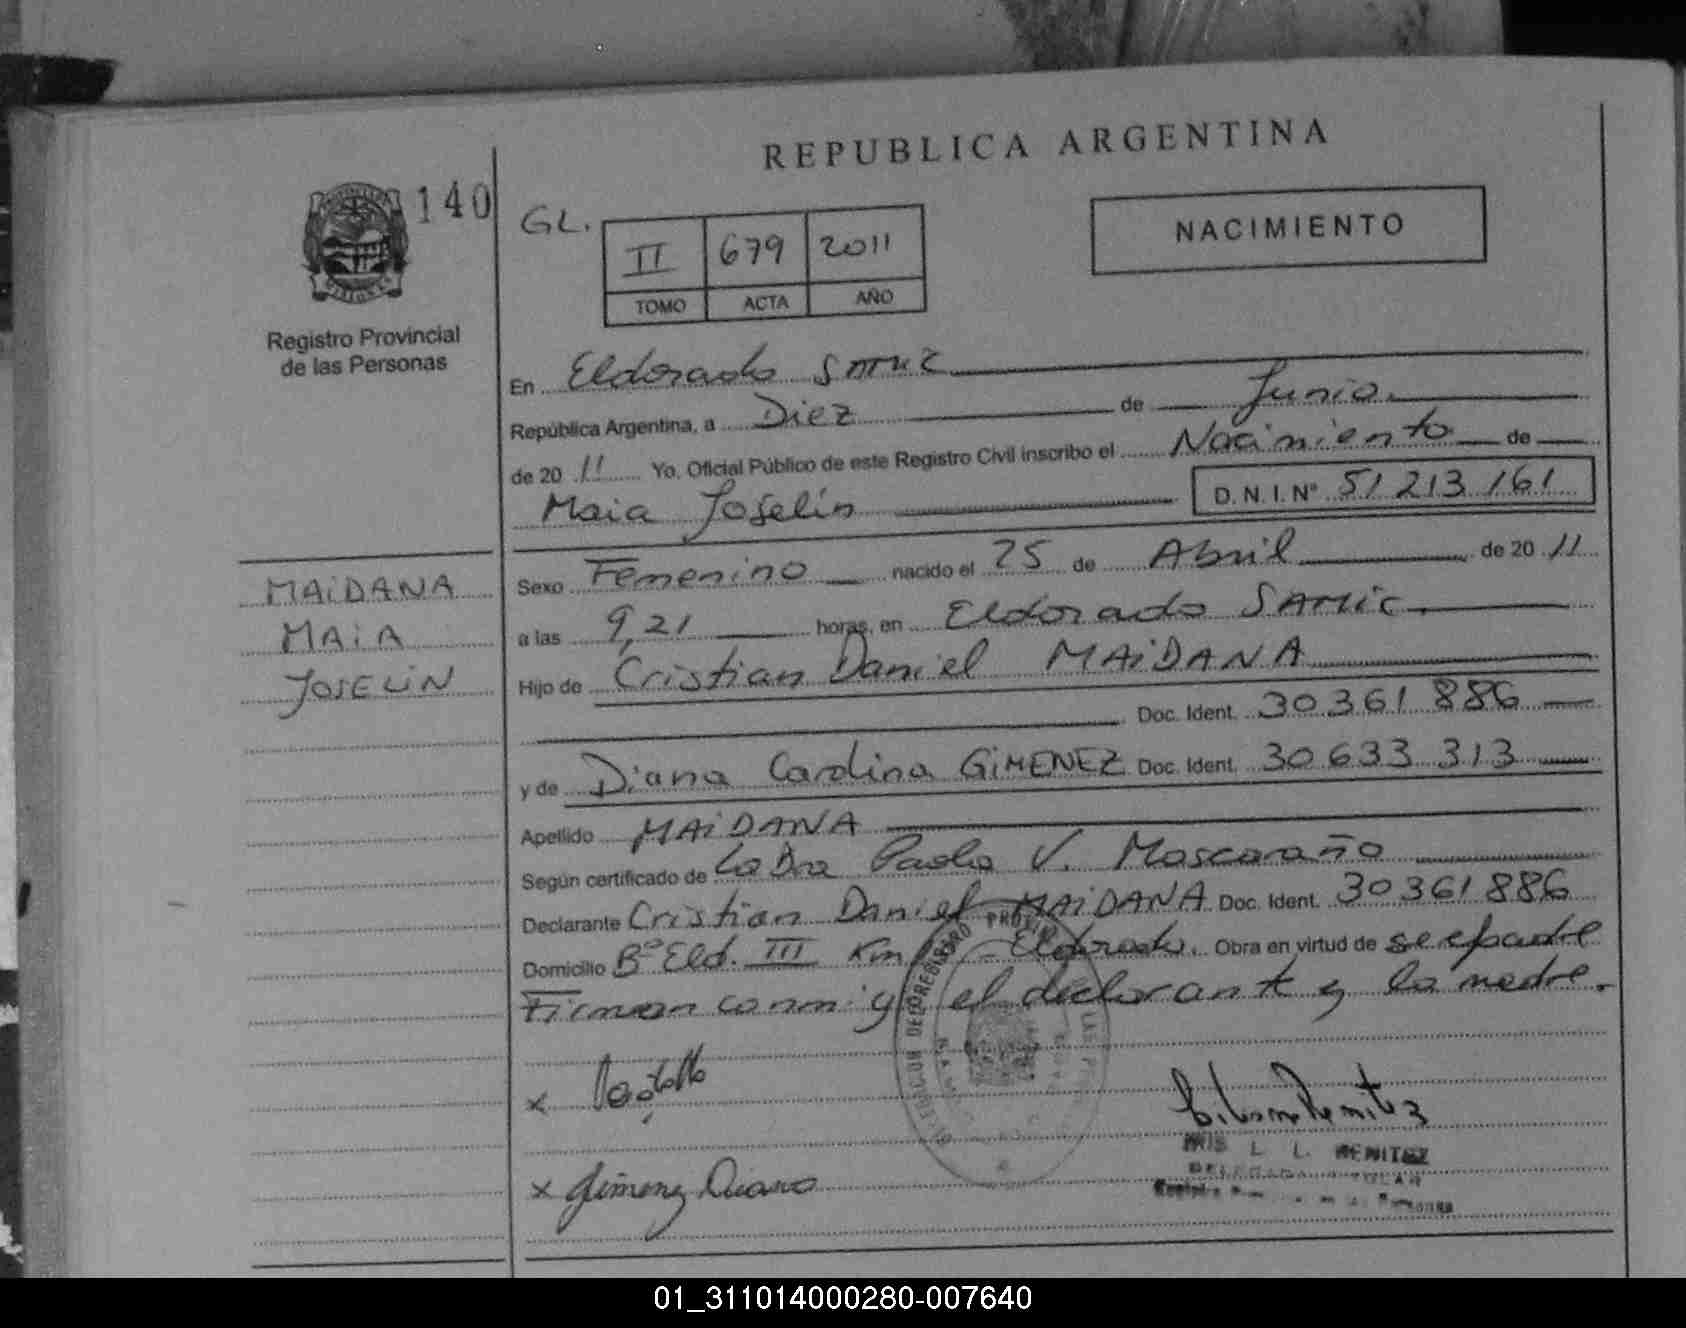 REPUBLICA ARGENTINA
140
GL.
II 679 2011
TOMO ACTA AÑO
NACIMIENTO
Registro Provincial
de las Personas
En Eldorado SAMIC
República Argentina, a Diez de Junio.
de 20 11 Yo, Oficial Público de este Registro Civil inscribo el Nacimiento de
Maia Joselin D. N. I. N° 51 213 161
MAiDANA
MAiA
JOSELiN
Sexo Femenino nacido el 25 de Abril de 20 11
a las 9,21 horas, en Eldorado SAMic.
Hijo de Cristian Daniel MAiDANA
Doc. Ident. 30 361 886
y de Diana Carolina GiMENEZ Doc. Ident. 30 633 313
Apellido MAiDANA
Según certificado de La Dra Paola V. Moscaraño
Declarante Cristian Daniel MAiDANA Doc. Ident. 30 361 886
Domicilio Bº Eld. III Km - Eldorado. Obra en virtud de ser el padre
Firman conmigo el declarante y la madre.
x
x Gimenez Diana
L. L. BENITEZ
01_311014000280-007640